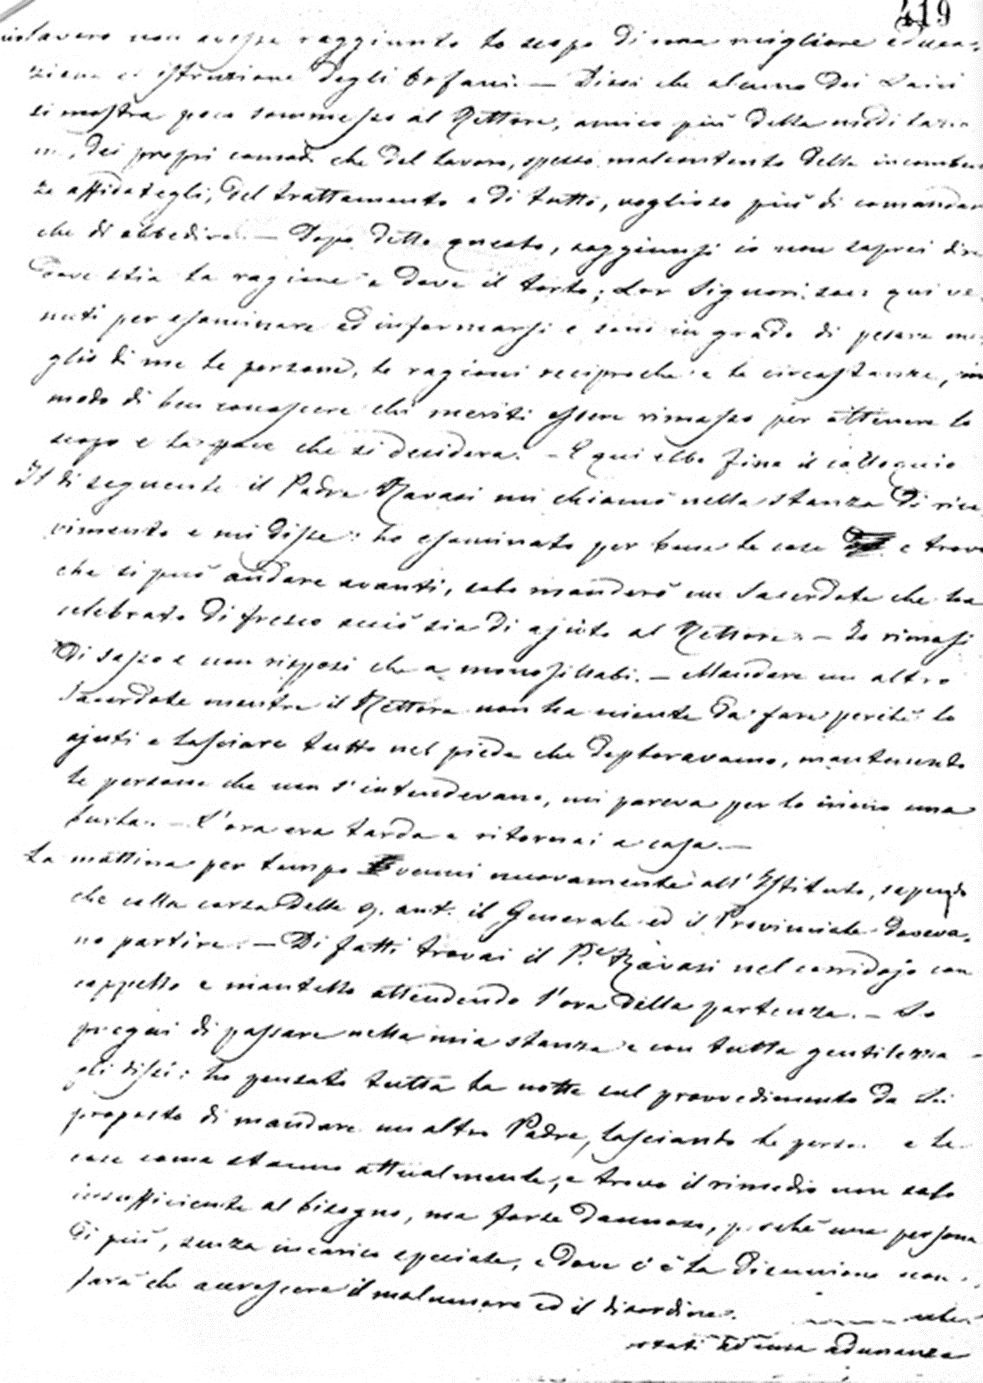 419
lavoro non avesse raggiunto lo scopo di una migliore educa-
zione ed istruzione degli Orfani. — Dissi che alcuno dei Laici
si mostra poco sommesso al Rettore, amico più della
dei propri comodi che del lavoro, spesso malcontento delle incomben
ze affidategli, del trattamento e di tutto, voglioso più di comandar
che di obbedire. — Dopo detto questo, soggiunsi io non saprei dire
dove stia la ragione e dove il torto; Lor Signori son qui ve-
nuti per esaminare ed informarsi e sono in grado di pesare me-
glio di me le persone, le ragioni reciproche e le circostanze, in
modo di ben conoscere chi meriti essere rimosso per ottenere lo
scopo e la pace che si desidera. — E qui ebbe fine il colloquio
Il dì seguente il Padre Ravasi mi chiamò nella stanza di rice
vimento e mi disse: ho esaminato per bene le cose e trovo
che si può andare avanti, solo manderò un Sacerdote che ha
celebrato di fresco acciò sia di ajuto al Rettore. — Io rimasi
di sasso e non risposi che a monosillabi. — Mandare un altro
Sacerdote mentre il Rettore non ha niente da fare perchè lo
ajuti e lasciare tutto nel piede che deploravamo, mantenendo
le persone che non s'intendevano, mi pareva per lo meno una
burla. — L'ora era tarda e ritornai a casa. —
La mattina per tempo venni nuovamente all'Istituto, sapendo
che colla corsa delle 9. ant. il Generale ed il Provinciale doveva-
no partire. — Di fatti trovai il P. Ravasi nel corridojo con
cappello e mantello attendendo l'ora della partenza. — Lo
pregai di passare nella mia stanza e con tutta gentilezza
gli dissi: ho pensato tutta la notte sul provvedimento da Lei
proposto di mandare un altro Padre, lasciando le perso. e le
cose come stanno attualmente, e trovo il rimedio non solo
insufficiente al bisogno, ma forse dannoso, perchè una persona
di più, senza incarico speciale, e dove c'è la disunione non
farà che accrescere il malumore ed il disordine.
ad una adunanza